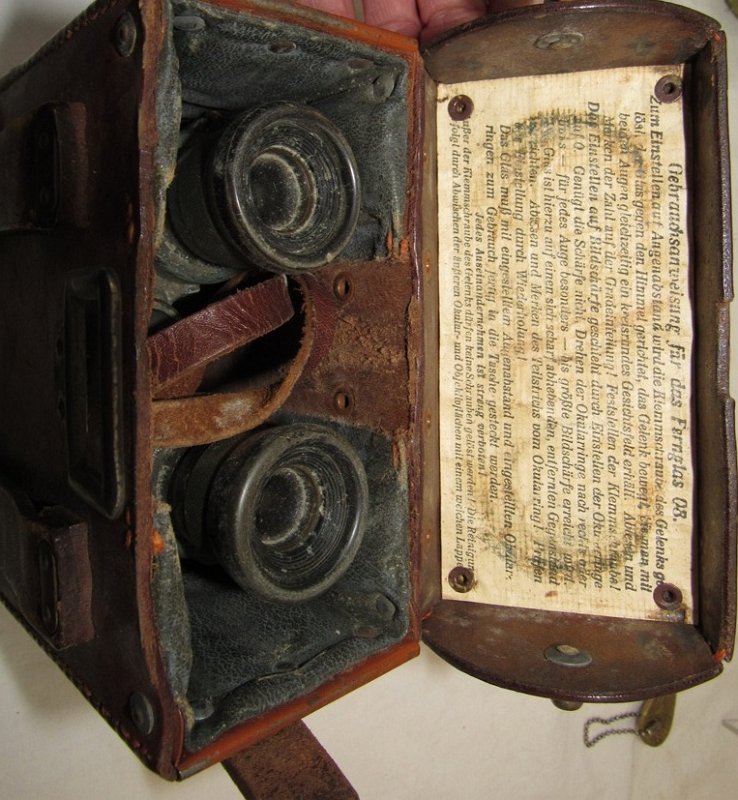 Gebrauchsanweisung für das Fernglas 08.
Zum Einstellen auf Augenabstand wird die Klemmschraube des Gelenks ge-
löst, das Glas gegen den Himmel gerichtet, das Gelenk bewegt, bis man mit
beiden Augen gleichzeitig ein kreisrundes Gesichtsfeld erhält. Ablesen und
Merken der Zahl auf der Gradeinteilung! Feststellen der Klemmschraube!
Das Einstellen auf Bildschärfe geschieht durch Einstellen der Okularringe
auf 0. Genügt die Schärfe nicht, Drehen der Okularringe nach rechts oder
links — für jedes Auge besonders — bis größte Bildschärfe erreicht
Glas ist hierzu auf einen sich scharf abhebenden, entfernten Gegenstand
zu richten. Ablesen und Merken des Teilstrichs vom Okularring! Prüfen
der Einstellung durch Wiederholung!
Das Glas muß mit eingestelltem Augenabstand und eingestellten Okular-
ringen zum Gebrauch fertig in die Tasche gesteckt werden.
Jedes Auseinandernehmen ist streng verboten!
Außer der Klemmschraube des Gelenks dürfen keine Schrauben gelöst werden! Die Reinigung
erfolgt durch Abwischen der äußeren Okular- und Objektivflächen mit einem weichen Lapp